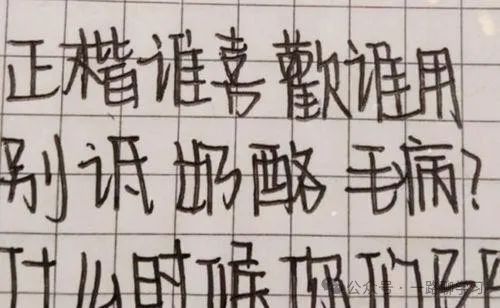 正楷谁喜歡谁用
别诋奶酪毛病?
什么时候你们
公众号·一路聊学习